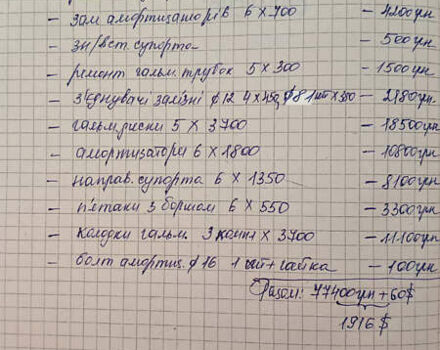 - зам амортизаторів 6 x 700 - 4200грн
- зн/вст. супорта - 500грн
- ремонт гальм. трубок 5 x 300 - 1500грн
- з'єднувачі залізні ø12 4 x 450, ø8 1 шт x 380 - 2180грн
- гальм. диски 5 x 3700 - 18500грн
- амортизатори 6 x 1800 - 10800грн
- направ. супорта 6 x 1350 - 8100грн
- п'ятаки з боршом 6 x 550 - 3300грн
- колодки гальм. 3 комп x 3700 - 11100грн
- болт амортиз. ø16 1 шт + гайка - 100грн
Разом: 77400грн + 60$
1916 $